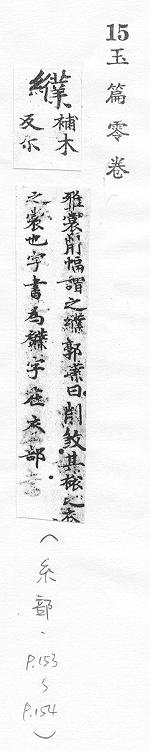 15 玉篇零卷
纀
補木
反尔
雅裳削幅謂之纀郭璞曰削殺其幅深衣
之裳也字書為襥字在衣部
(糸部・P.153〜P.154)